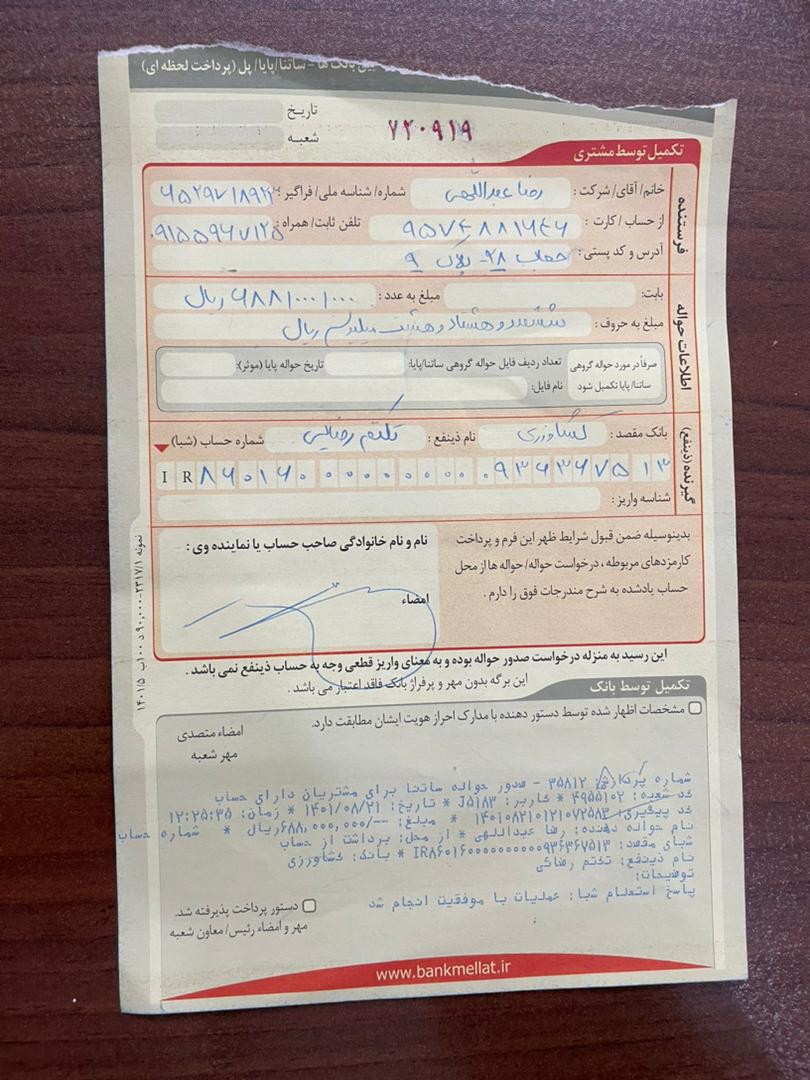 بین بانک ها - ساتنا/پایا/ پل (پرداخت لحظه ای)
تاریخ
شعبه
۷۲۰۹۱۹
تکمیل توسط مشتری
فرستنده
خانم/ آقای/ شرکت : رضا عبداللهی شماره/ شناسه ملی/ فراگیر :
از حساب / کارت : تلفن ثابت/ همراه : ۰۹۱۵۵۹۶۷۱۲۵
آدرس و کد پستی : پلاک ۹
اطلاعات حواله
بابت: مبلغ به عدد : ۶۸۸/۰۰۰/۰۰۰ ریال
مبلغ به حروف : ششصد و هشتاد و هشت میلیون ریال
صرفاً در مورد حواله گروهی ساتنا/ پایا تکمیل شود
تعداد ردیف فایل حواله گروهی ساتنا/پایا: تاریخ حواله پایا (موثر):
نام فایل:
گیرنده (ذینفع)
بانک مقصد : کشاورزی نام ذینفع : تکتم رضائی شماره حساب (شبا)
IR ۸۶۰۱۶۰۰۰۰۰۰۰۰۰۰۰۹۳۶۳۶۷۵۱۳
شناسه واریز :
بدینوسیله ضمن قبول شرایط ظهر این فرم و پرداخت
کارمزدهای مربوطه ، درخواست حواله/ حواله ها از محل
حساب یادشده به شرح مندرجات فوق را دارم .
نام و نام خانوادگی صاحب حساب یا نماینده وی :
امضاء
این رسید به منزله درخواست صدور حواله بوده و به معنای واریز قطعی وجه به حساب ذینفع نمی باشد .
این برگه بدون مهر و پرفراژ بانک فاقد اعتبار می باشد .
تکمیل توسط بانک
مشخصات اظهار شده توسط دستور دهنده با مدارک احراز هویت ایشان مطابقت دارد.
امضاء متصدی
مهر شعبه
شماره پرفراژ: ۳۵۸۱۲ - صدور حواله ساتنا برای مشتریان دارای حساب
کد شعبه: ۴۹۵۵۱۰۲ * کاربر: J۵۱۸۳ * تاریخ: ۱۴۰۱/۰۸/۲۱ * زمان: ۱۲:۲۵:۳۵
کد پیگیری: ۱۴۰۱۰۸۲۱۰۱۲۱۰۷۲۵۸۳ * مبلغ: --/۶۸۸,۰۰۰,۰۰۰ریال * شماره حساب
نام حواله دهنده: رضا عبداللهی * از محل: برداشت از حساب
شبای مقصد: IR۸۶۰۱۶۰۰۰۰۰۰۰۰۰۰۰۹۳۶۳۶۷۵۱۳ * بانک: کشاورزی
نام ذینفع: تکتم رضائی
توضیحات:
پاسخ استعلام شبا: عملیات با موفقیت انجام شد
دستور پرداخت پذیرفته شد.
مهر و امضاء رئیس/ معاون شعبه
www.bankmellat.ir